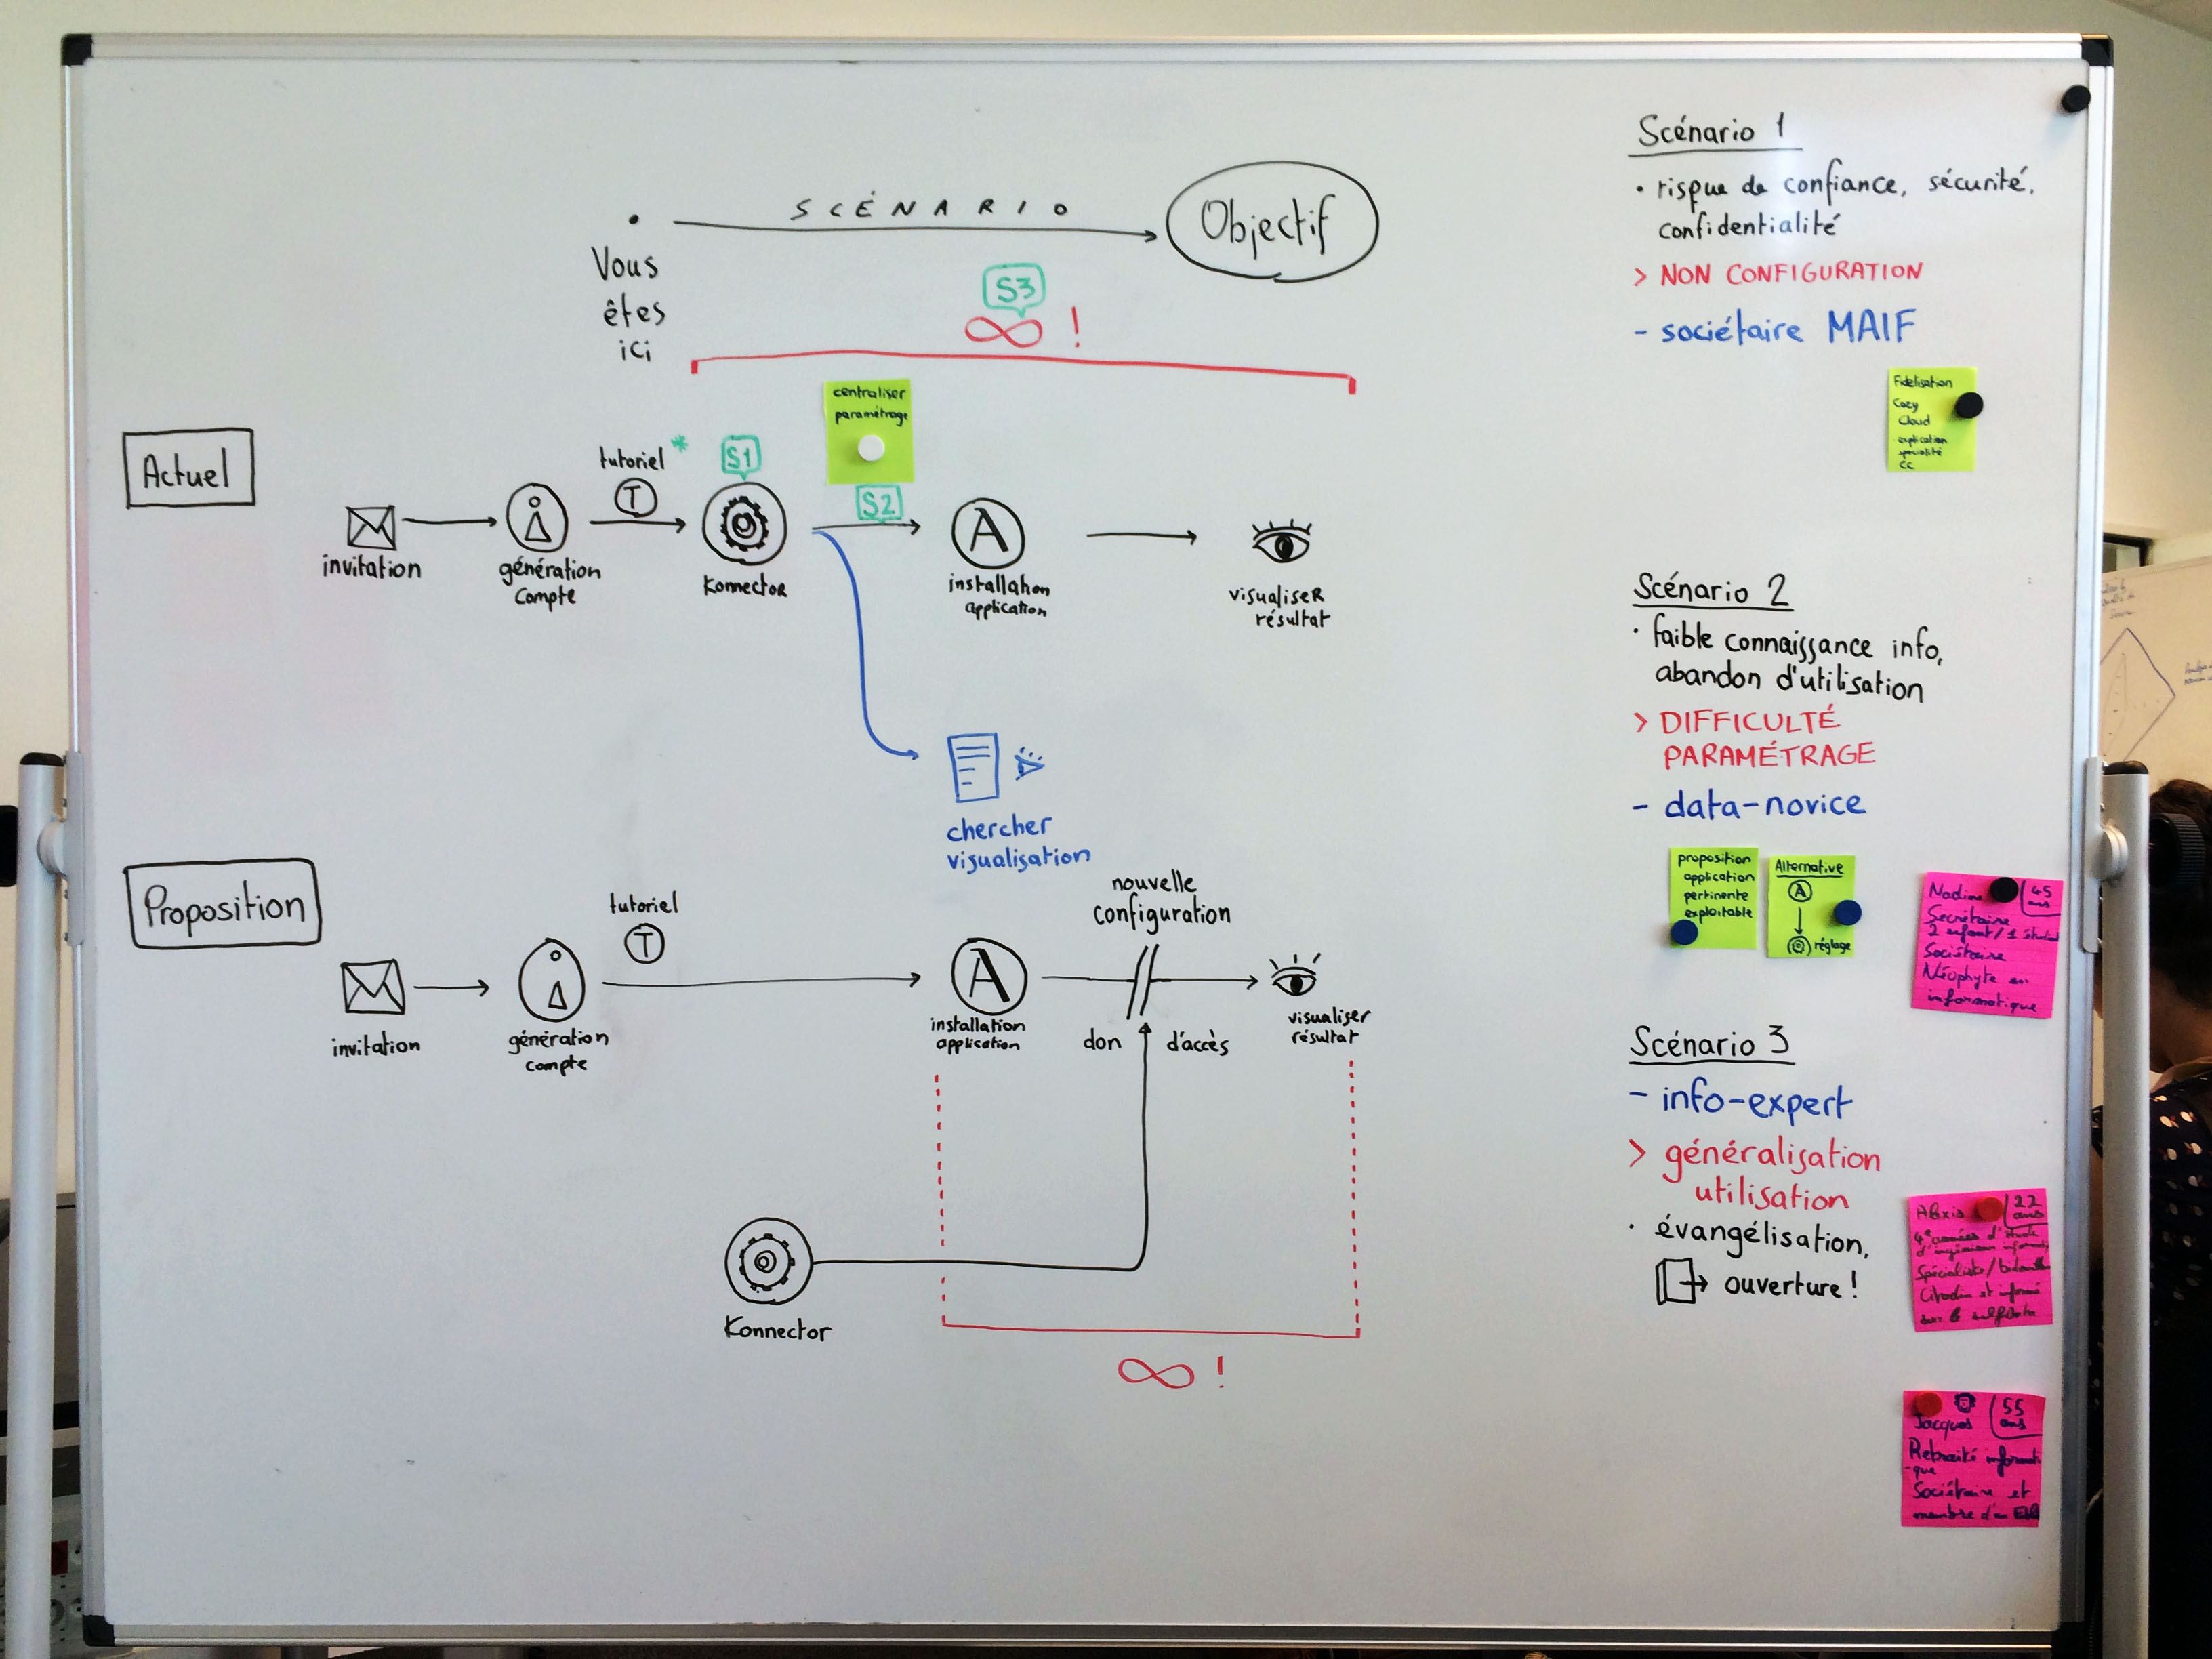 SCÉNARIO
Objectif
Vous
êtes
ici
S3
∞ !
Actuel
centraliser
paramétrage
tutoriel *
T
S1
S2
A
invitation
génération
compte
Konnector
installation
application
visualiser
résultat
chercher
visualisation
Proposition
tutoriel
T
nouvelle
configuration
A
invitation
génération
compte
installation
application
don d'accès
visualiser
résultat
Konnector
∞ !
Scénario 1
• risque de confiance, sécurité,
confidentialité
> NON CONFIGURATION
- sociétaire MAIF
Fidélisation
Cozy
Cloud
explication
spécialité
CC
Scénario 2
• faible connaissance info,
abandon d'utilisation
> DIFFICULTÉ
PARAMÉTRAGE
- data-novice
proposition
application
pertinente
exploitable
Alternative
A
réglage
Nadine 45
ans
Secrétaire
2 enfant / 1
Sociétaire
Néophyte en
informatique
Scénario 3
- info-expert
> généralisation
utilisation
• évangélisation,
ouverture !
Alexis 22
ans
4e années d'étude
d'ingénieur
Spécialiste /
Citadin et informé
sur le selfdata
Jacques 55
ans
Retraité informati
-que
Sociétaire et
membre d'un